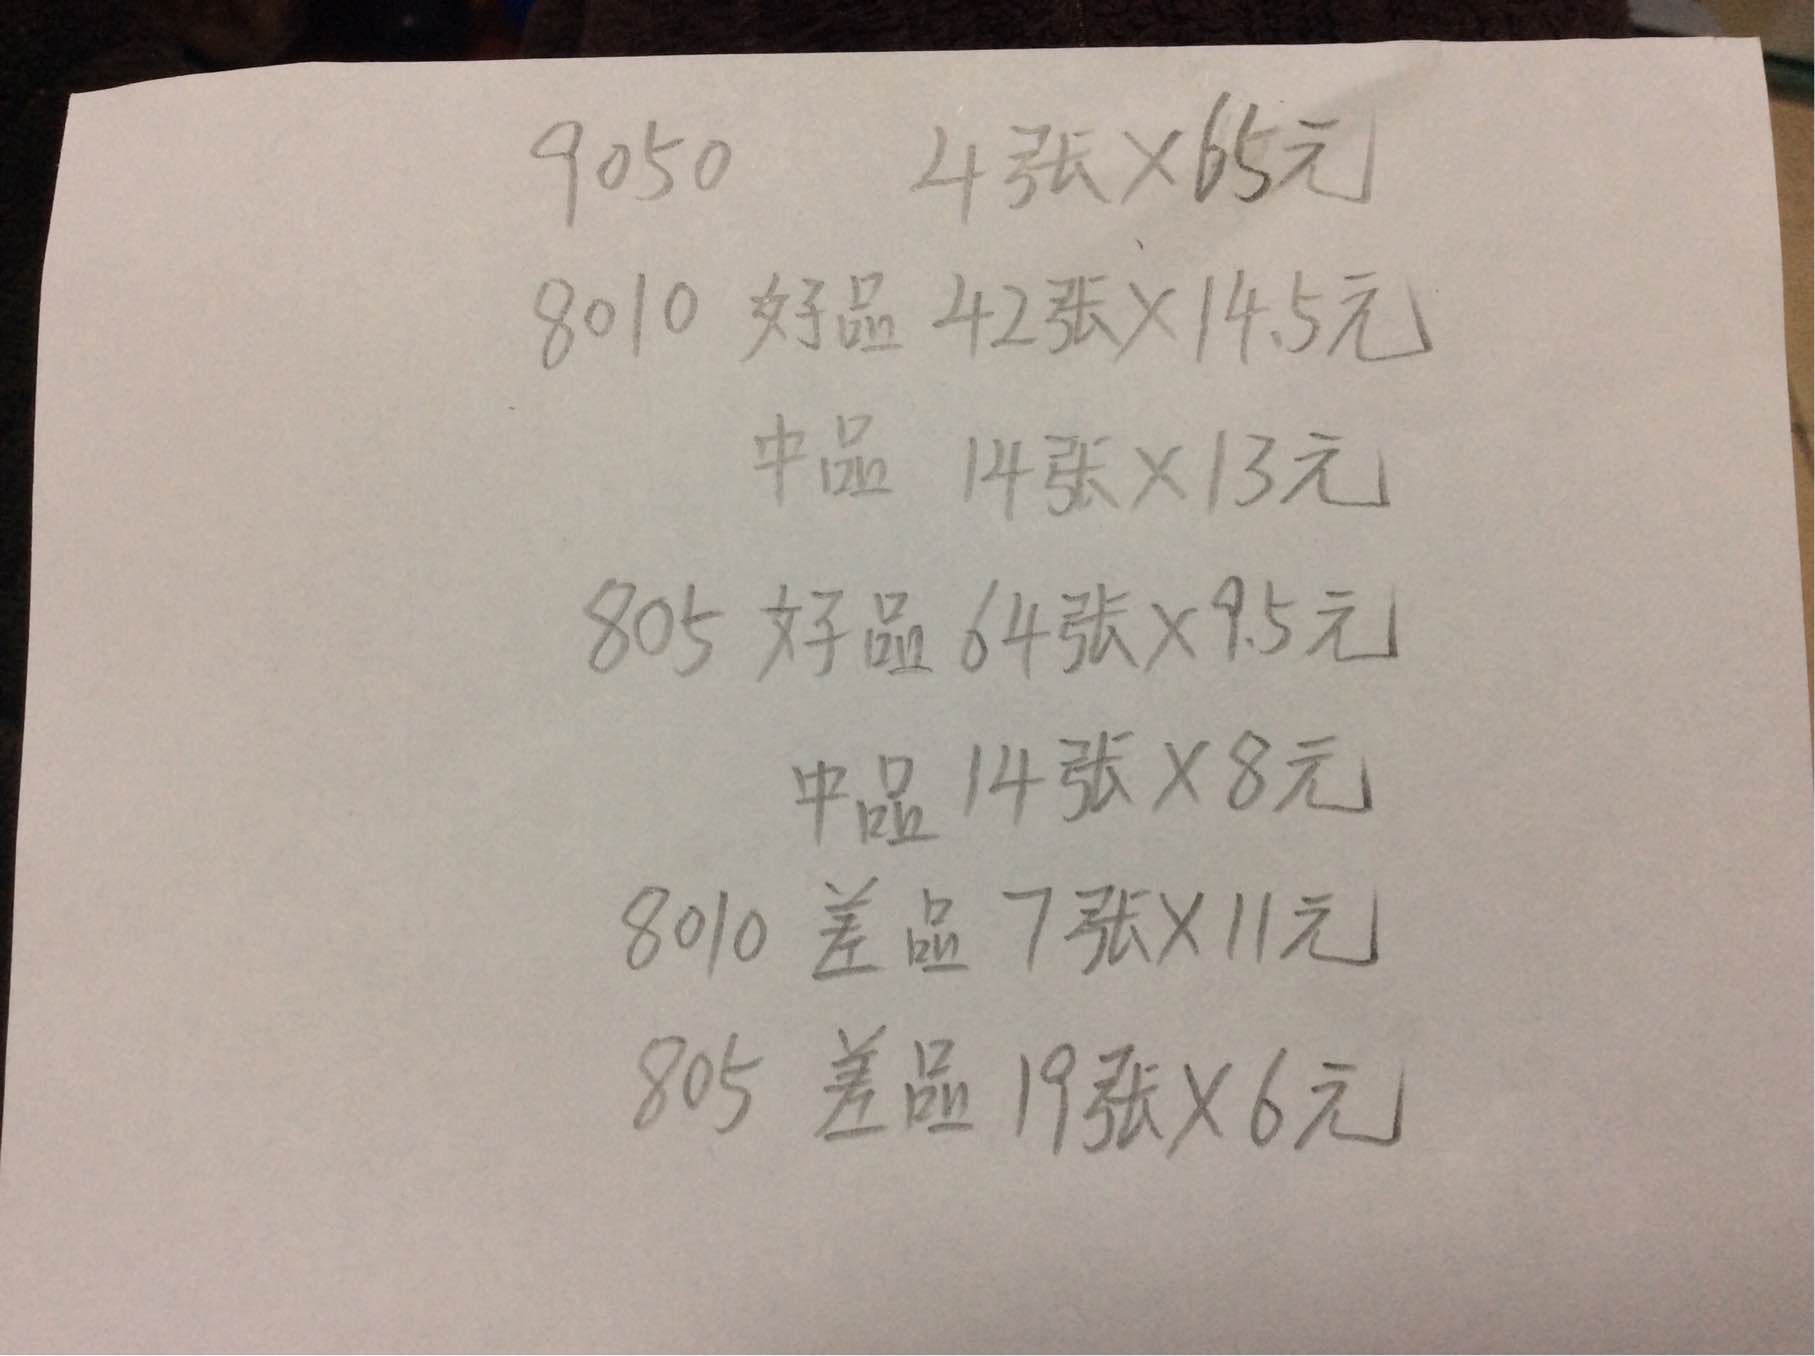 9050 4张×65元
8010 好品 42张×14.5元
中品 14张×13元
805 好品 64张×9.5元
中品 14张×8元
8010 差品 7张×11元
805 差品 19张×6元